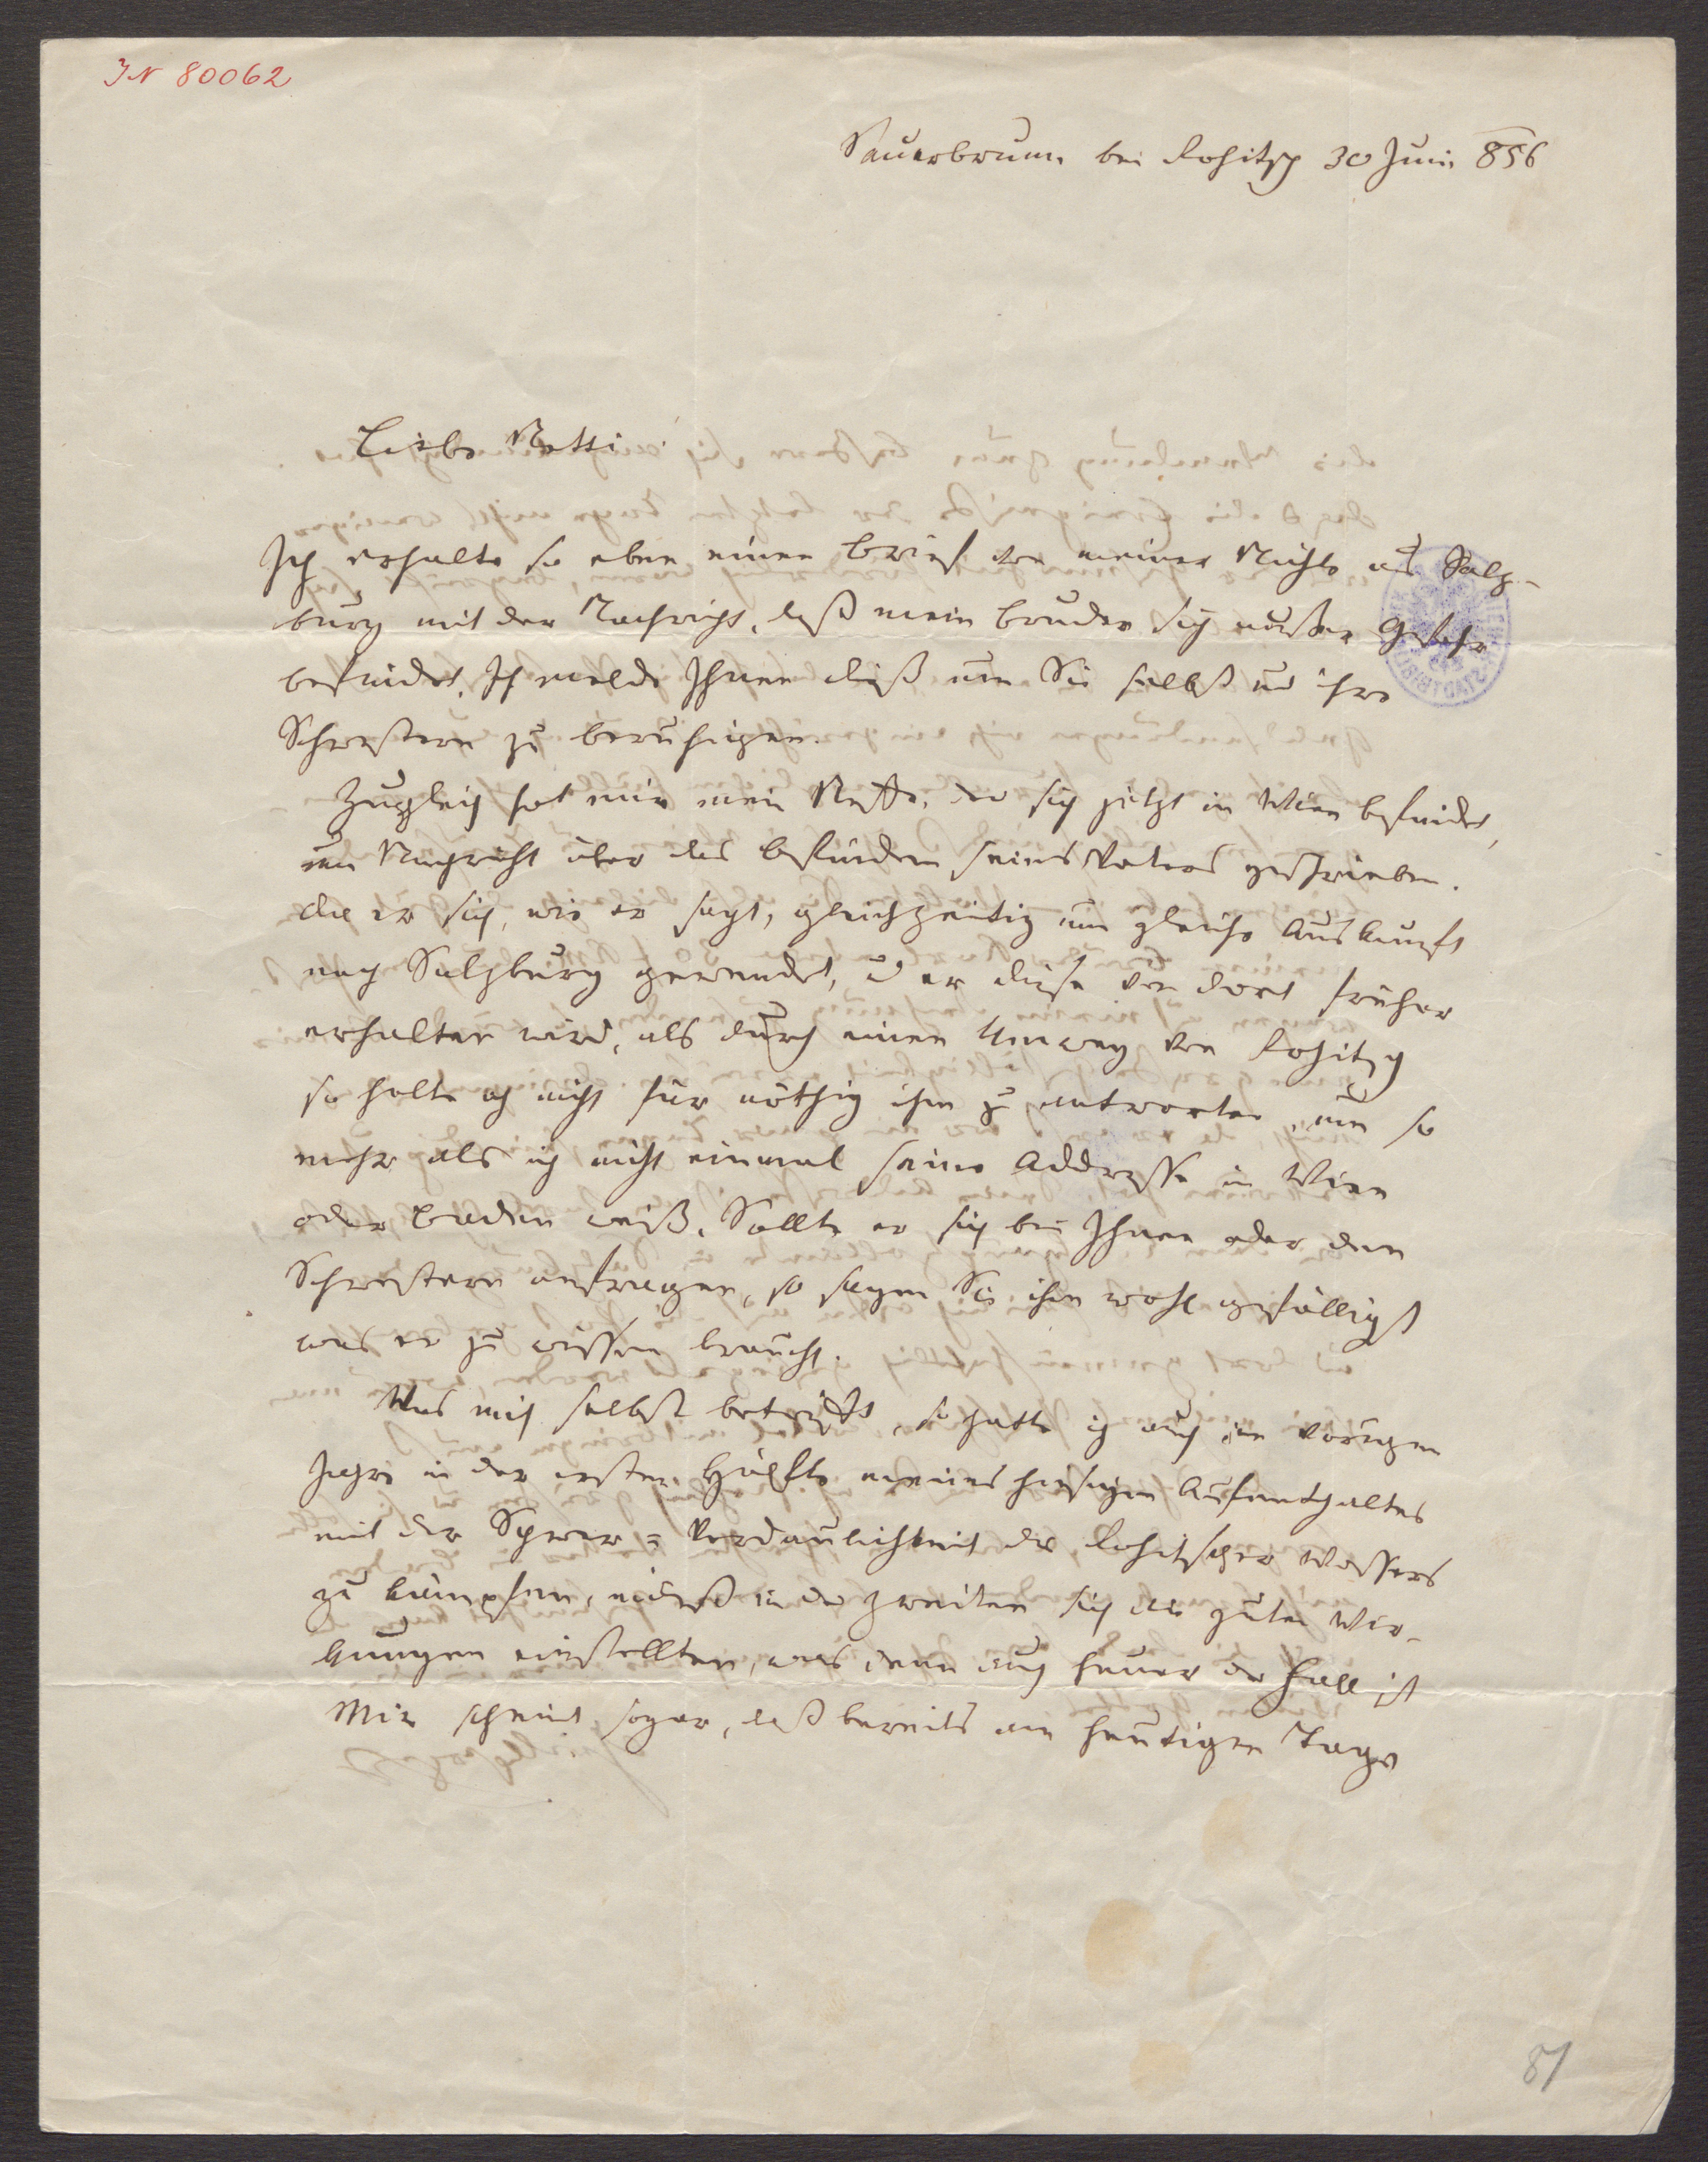 IN 80062
Sauerbrunn bei Rohitsch 30 Juni 856
Liebe Netti
Ich erhalte so eben einen Brief von meiner Nichte aus Salz-
burg mit der Nachricht, daß mein Bruder sich außer Gefahr
befindet. Ich melde Ihnen dieß um Sie selbst und ihre
Schwestern zu beruhigen.
Zugleich hat mir mein Neffe, der sich jetzt in Wien befindet,
um Nachricht über das Befinden seines Vaters geschrieben.
da er sich, wie er sagt, gleichzeitig um gleiche Auskunft
nach Salzburg gewendet, u er diese von dort früher
erhalten wird, als durch einen Umweg von Rohitsch
so halte ich nicht für nöthig ihm zu antworten, um so
mehr als ich nicht einmal seine Addresse in Wien
oder Baden weiß. Sollte er sich bei Ihnen oder den
Schwestern anfragen, so sagen Sie ihm wohl gefälligst
was er zu wissen braucht.
Was mich selbst betrifft, so hatte ich auch im vorigen
Jahre in der ersten Hälfte meines hiesigen Aufenthaltes
mit der Schwer-Verdaulichkeit des Rohitscher Wassers
zu kämpfen, indeß in der zweiten sich die guten Wir-
kungen einstellten, was denn auch heuer der Fall ist
Mir scheint sogar, daß bereits am heutigen Tage
81